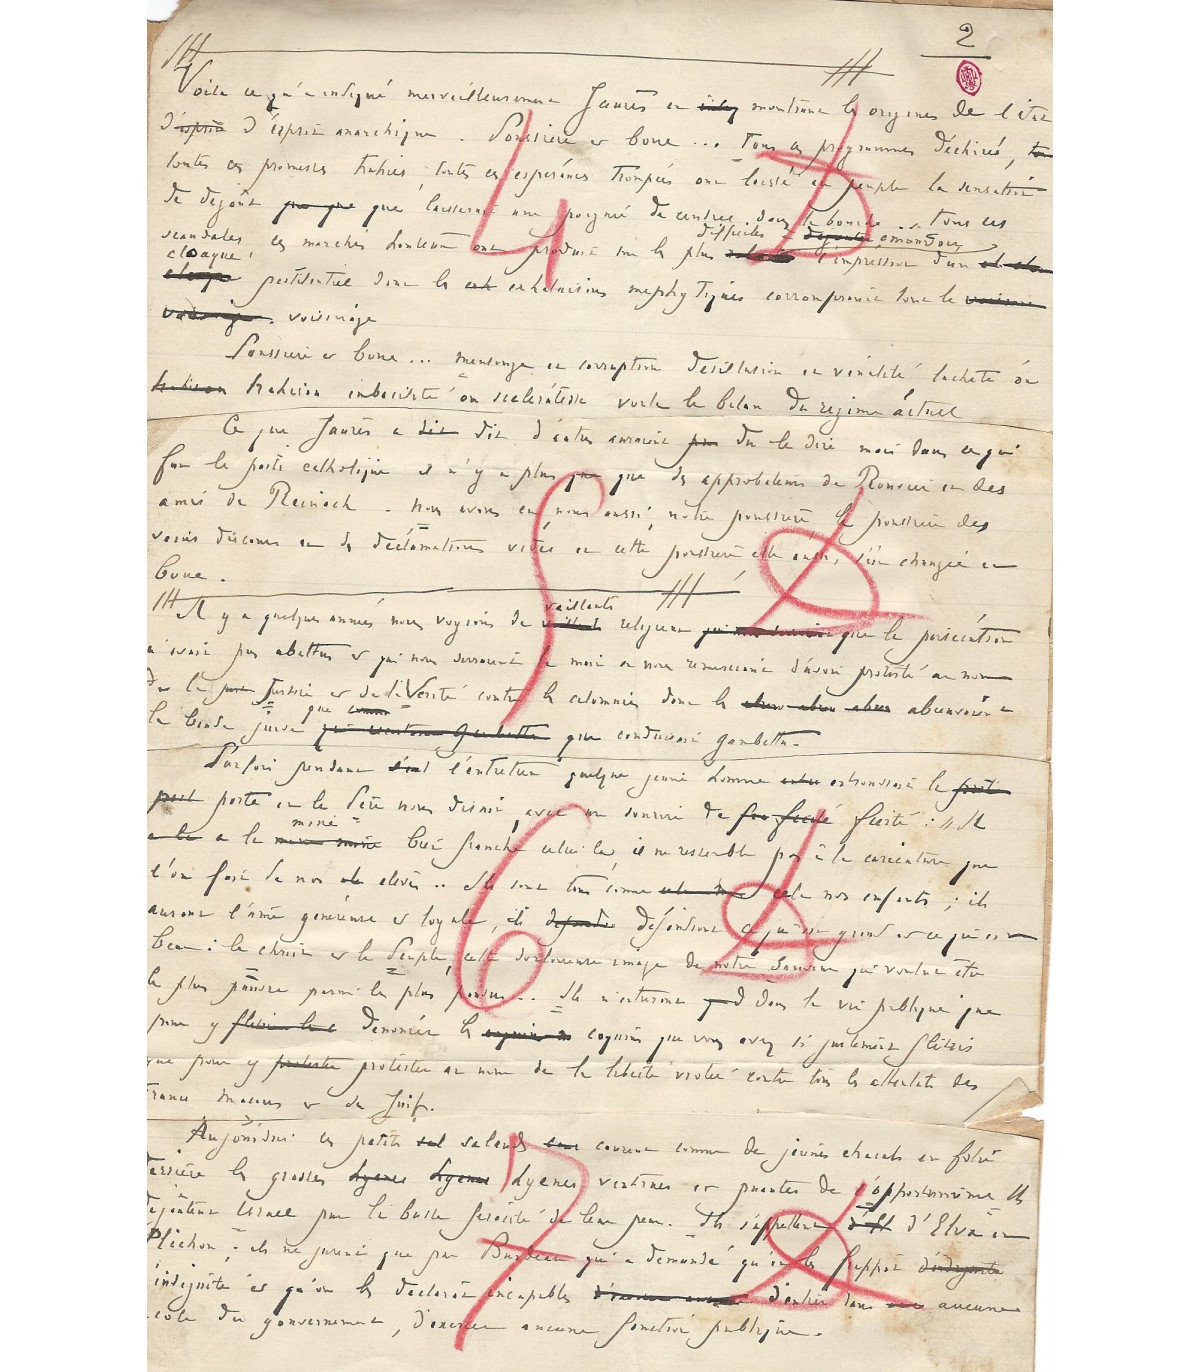 2
Voilà ce qu'a indiqué merveilleusement Jaurès en montrant les origines de l'état
d'esprit d'esprit anarchique. Poussière et boue... Tous ces programmes déchirés,
toutes ces promesses trahies, toutes ces espérances trompées ont laissé au peuple la sensation
de dégoût que laisserait une poignée de cendres dans la bouche tous ces
difficiles à émouvoir
scandales, ces marchés honteux ont produit sur les plus l'impression d'un
cloaque
pestilentiel dont les exhalaisons méphytiques corrompraient tout le
voisinage
Poussière et boue... mensonge et corruption désillusion et vénalité lacheté ou
trahison imbécilité ou scélératesse voilà le bilan du régime actuel
Ce que Jaurès a dit, d'autres auraient du le dire mais dans ce qui
fut le parti catholique il n'y a plus que des approbateurs de Rouvier et des
amis de Reinach. Nous avons eu, nous aussi, notre poussière la poussière des
vains discours et des déclamations vides et cette poussière, elle aussi, s'est changée en
boue.
Il y a quelques années nous voyions de vaillants religieux que la persécution
n'avait pas abattus et qui nous serraient la main en nous remerciant d'avoir protesté au nom
de la Justice et de la Vérité contre les calomnies dont les abreuvait
la bande juive que que conduisait Gambetta.
Parfois pendant l'entretien quelque jeune homme entrouvrait le
porte et le Père nous disait, avec un sourire de fierté : "Il
a la mine bien franche celui-là, il ne ressemble pas à la caricature que
l'on fait de nos élèves.. Ils sont tous comme cela nos enfants ; ils
auront l'âme généreuse et loyale, ils défendront ce qui est grand et ce qui est
beau : le Christ et le Peuple, cette douloureuse image de notre Sauveur qui voulut être
le plus pauvre parmi les plus pauvres... Ils n'entreront dans la vie publique que
pour y dénoncer les coquins que vous avez si justement flétris
que pour y protester au nom de la liberté violée contre tous les attentats des
Francs Maçons et des Juifs.
Aujourd'hui ces petits salauds courent comme de jeunes chacals en folie
derrière les grosses hyènes hyènes hyènes ventrues et puantes de l'opportunisme Ils
dégoûtent Israël par la basse férocité de leur peur. Ils s'appellent d'Elva et
Plichon ; ils ne jurent que par Burdeau qui a demandé qu'on les frappât
d'indignité et qu'on les déclarât incapables d'entrer dans aucune
école du gouvernement, d'exercer aucune fonction publique.
4
5
6
7